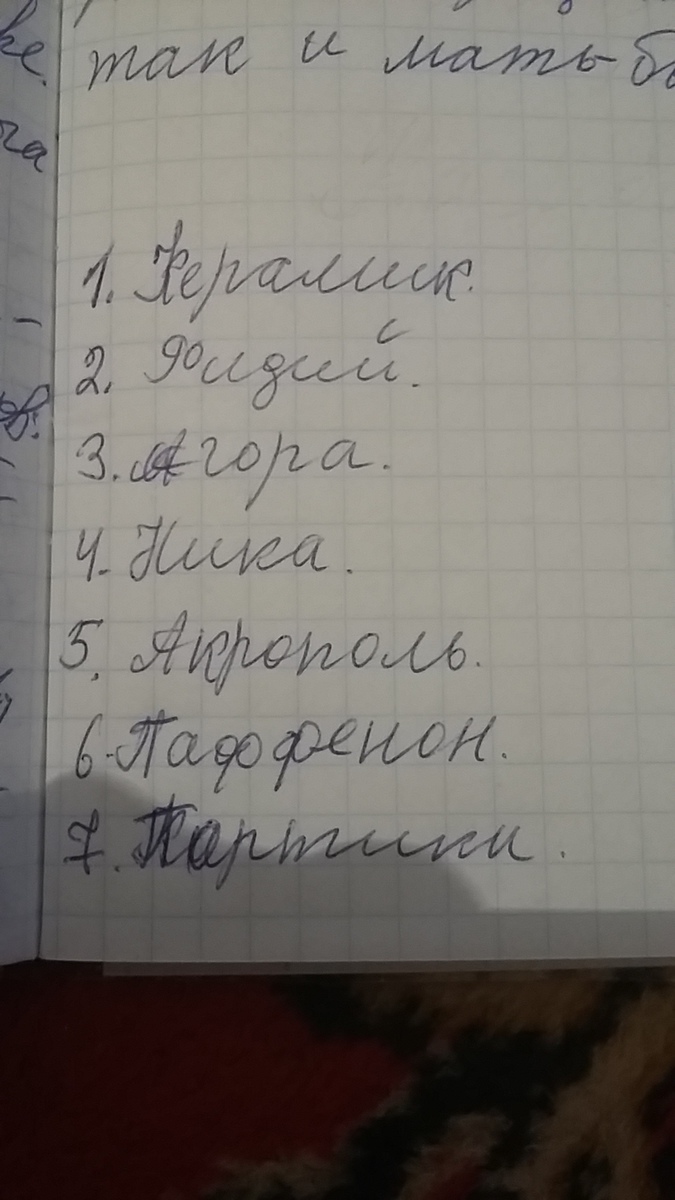 так и мать-
1. Керамик.
2. Фидий.
3. Агора.
4. Ника.
5. Акрополь.
6. Паффенон.
7. Партики.